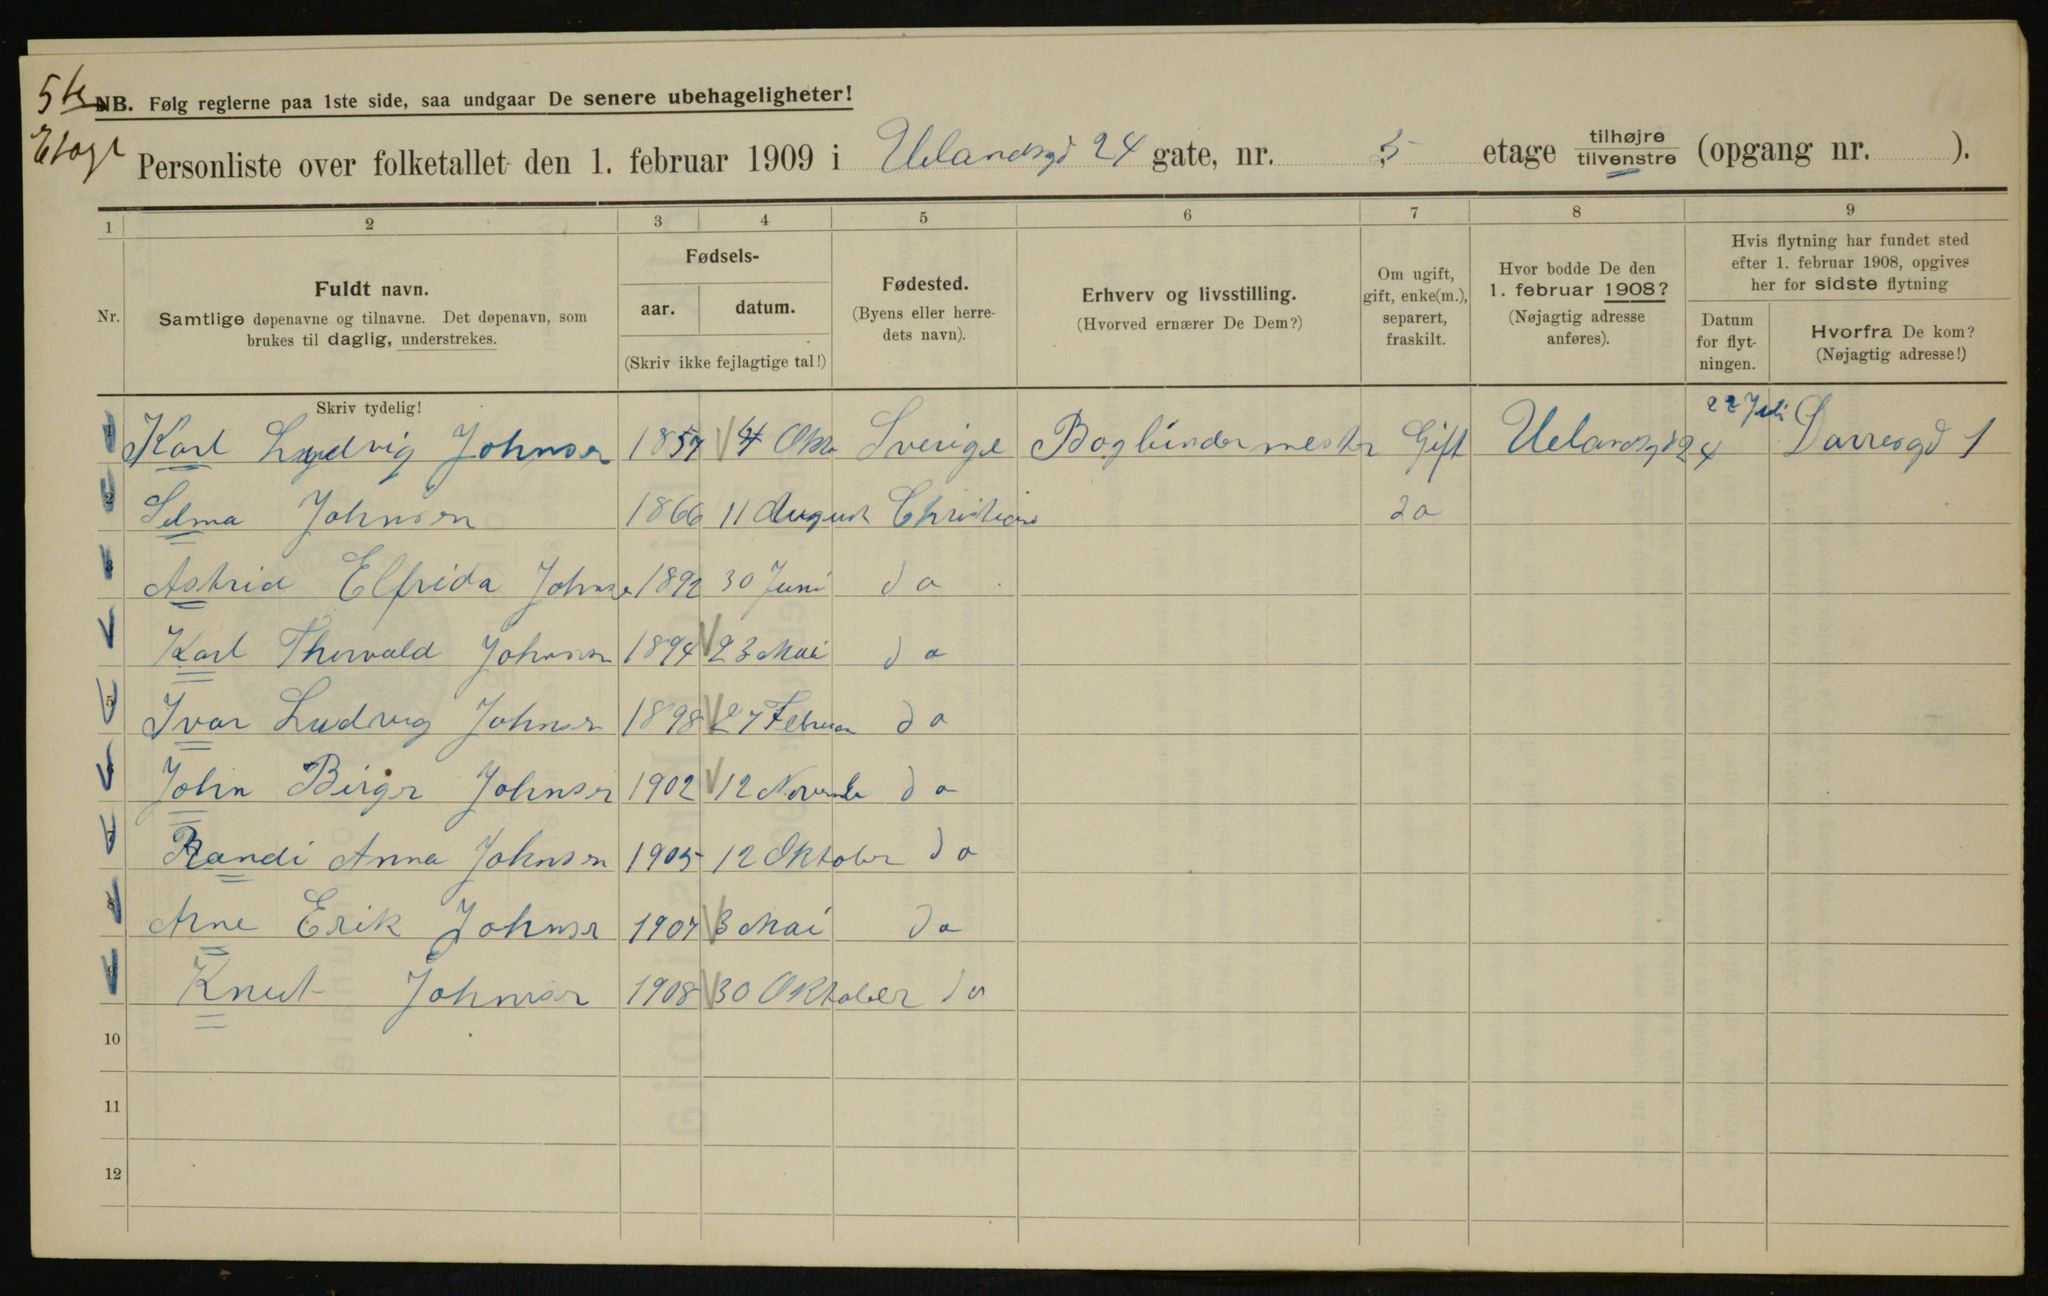 5te
Etage
NB. Følg reglerne paa 1ste side, saa undgaar De senere ubehageligheter!
Personliste over folketallet den 1. februar 1909 i Uelandsgd 24 gate, nr. 5 etage tilhøjre tilvenstre (opgang nr. ).
1 2 3 4 5 6 7 8 9
Nr.
Fuldt navn.
Samtlige døpenavne og tilnavne. Det døpenavn, som
brukes til daglig, understrekes.
Skriv tydelig!
Fødsels-
aar. datum.
(Skriv ikke fejlagtige tal!)
Fødested.
(Byens eller herre-
dets navn).
Erhverv og livsstilling.
(Hvorved ernærer De Dem?)
Om ugift,
gift, enke(m.),
separert,
fraskilt.
Hvor bodde De den
1. februar 1908?
(Nøjagtig adresse
anføres).
Hvis flytning har fundet sted
efter 1. februar 1908, opgives
her for sidste flytning
Datum
for flyt-
ningen.
Hvorfra De kom?
(Nøjagtig adresse!)
1 Karl Ludvig Johnsen 1857 4 Okto Sverige Bogbindermester Gift Uelandsgd 24 22 Juli Darresgd 1
2 Selma Johnsen 1866 11 August Christiania do
3 Astrid Elfrida Johnsen 1892 30 Juni do
Karl Thorvald Johnsen 1894 23 Mai do
5 Ivar Ludvig Johnsen 1898 27 Februar do
6 John Birger Johnsen 1902 12 November do
7 Randi Anna Johnsen 1905 12 Oktober do
8 Arne Erik Johnsen 1907 3 Mai do
9 Knut Johnsen 1908 30 Oktober do
10
11
12